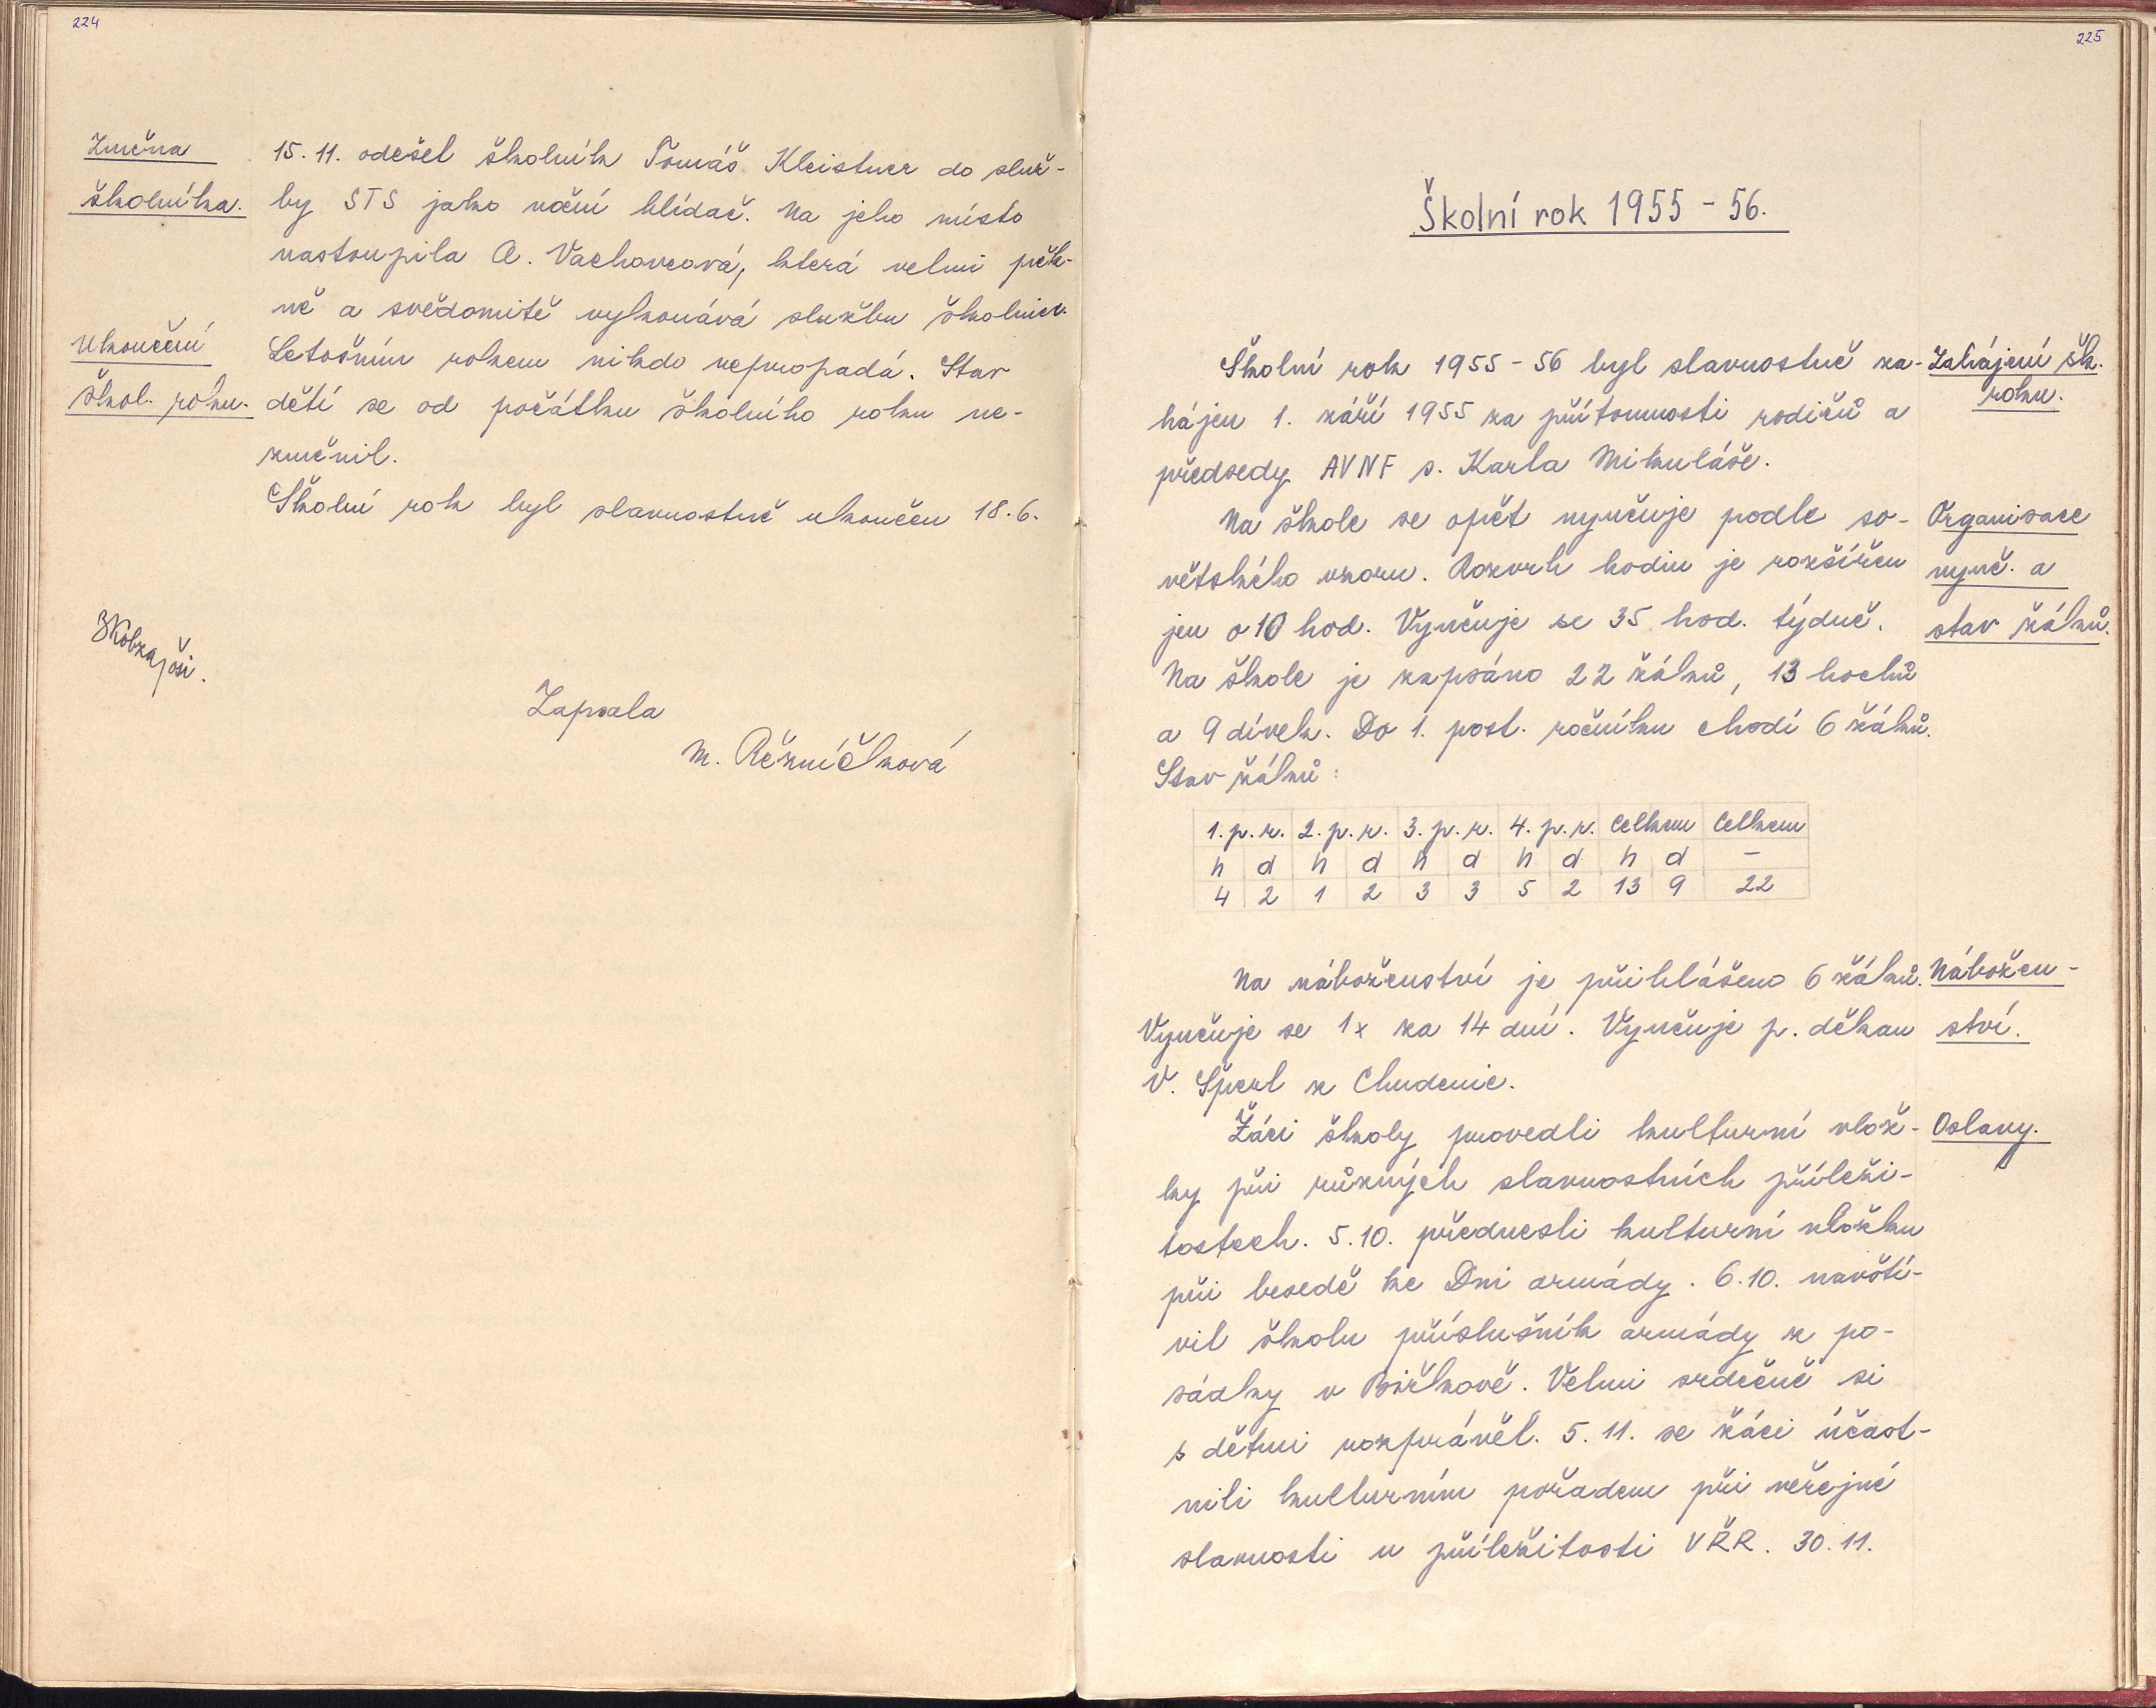 224
Změna
školníka.
15. 11. odešel školník Tomáš Kleistner do služ-
by STS jako noční hlídač. Na jeho místo
nastoupila A. Vachovcová, která velmi pěk-
ně a svědomitě vykonává službu školnice.
Ukončení
škol. roku.
Letošním rokem nikdo nepropadá. Stav
dětí se od počátku školního roku ne-
změnil.
Školní rok byl slavnostně ukončen 18. 6.
Zapsala
M. Řezníčková
225
Školní rok 1955 - 56.
Školní rok 1955 - 56 byl slavnostně za-
hájen 1. září 1955 za přítomnosti rodičů a
předsedy AVNF s. Karla Mikuláše.
Zahájení šk.
roku.
Na škole se opět vyučuje podle so-
větského vzoru. Rozvrh hodin je rozšířen
jen o 10 hod. Vyučuje se 35 hod. týdně.
Na škole je zapsáno 22 žáků, 13 hochů
a 9 dívek. Do 1. post. ročníku chodí 6 žáků.
Stav žáků:
Organisace
vyuč. a
stav žáků.
1. p. r. 2. p. r. 3. p. r. 4. p. r. Celkem Celkem
h d h d h d h d h d -
4 2 1 2 3 3 5 2 13 9 22
Na náboženství je přihlášeno 6 žáků.
Vyučuje se 1x za 14 dní. Vyučuje p. děkan
V. Šperl z Chudenic.
Nábožen-
ství.
Žáci školy provedli kulturní vlož-
ky při různých slavnostních příleži-
tostech. 5. 10. přednesli kulturní vložku
při besedě ke Dni armády. 6. 10. navští-
vil školu příslušník armády z po-
sádky v Biřkově. Velmi srdečně si
s dětmi rozprávěl. 5. 11. se žáci účast-
nili kulturním pořadem při veřejné
slavnosti u příležitosti VŘR. 30. 11.
Oslavy.